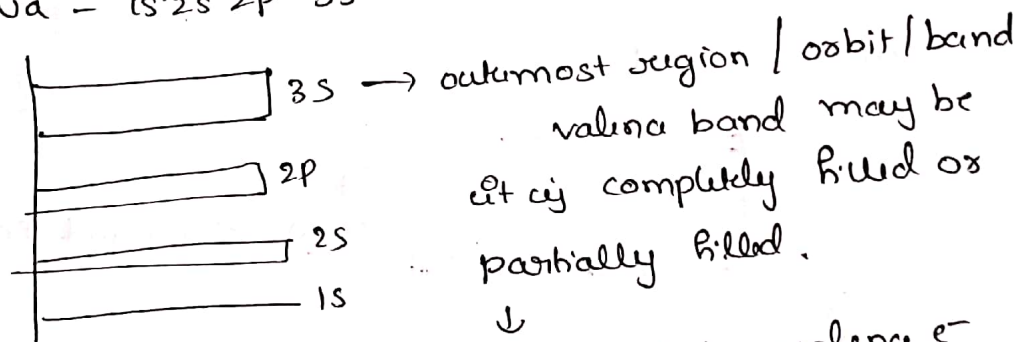 Na - 1s 2s 2p
3s → outermost region / orbit / band
valence band may be
2p
it is completely filled or
2s
partially filled.
1s
↓
e⁻